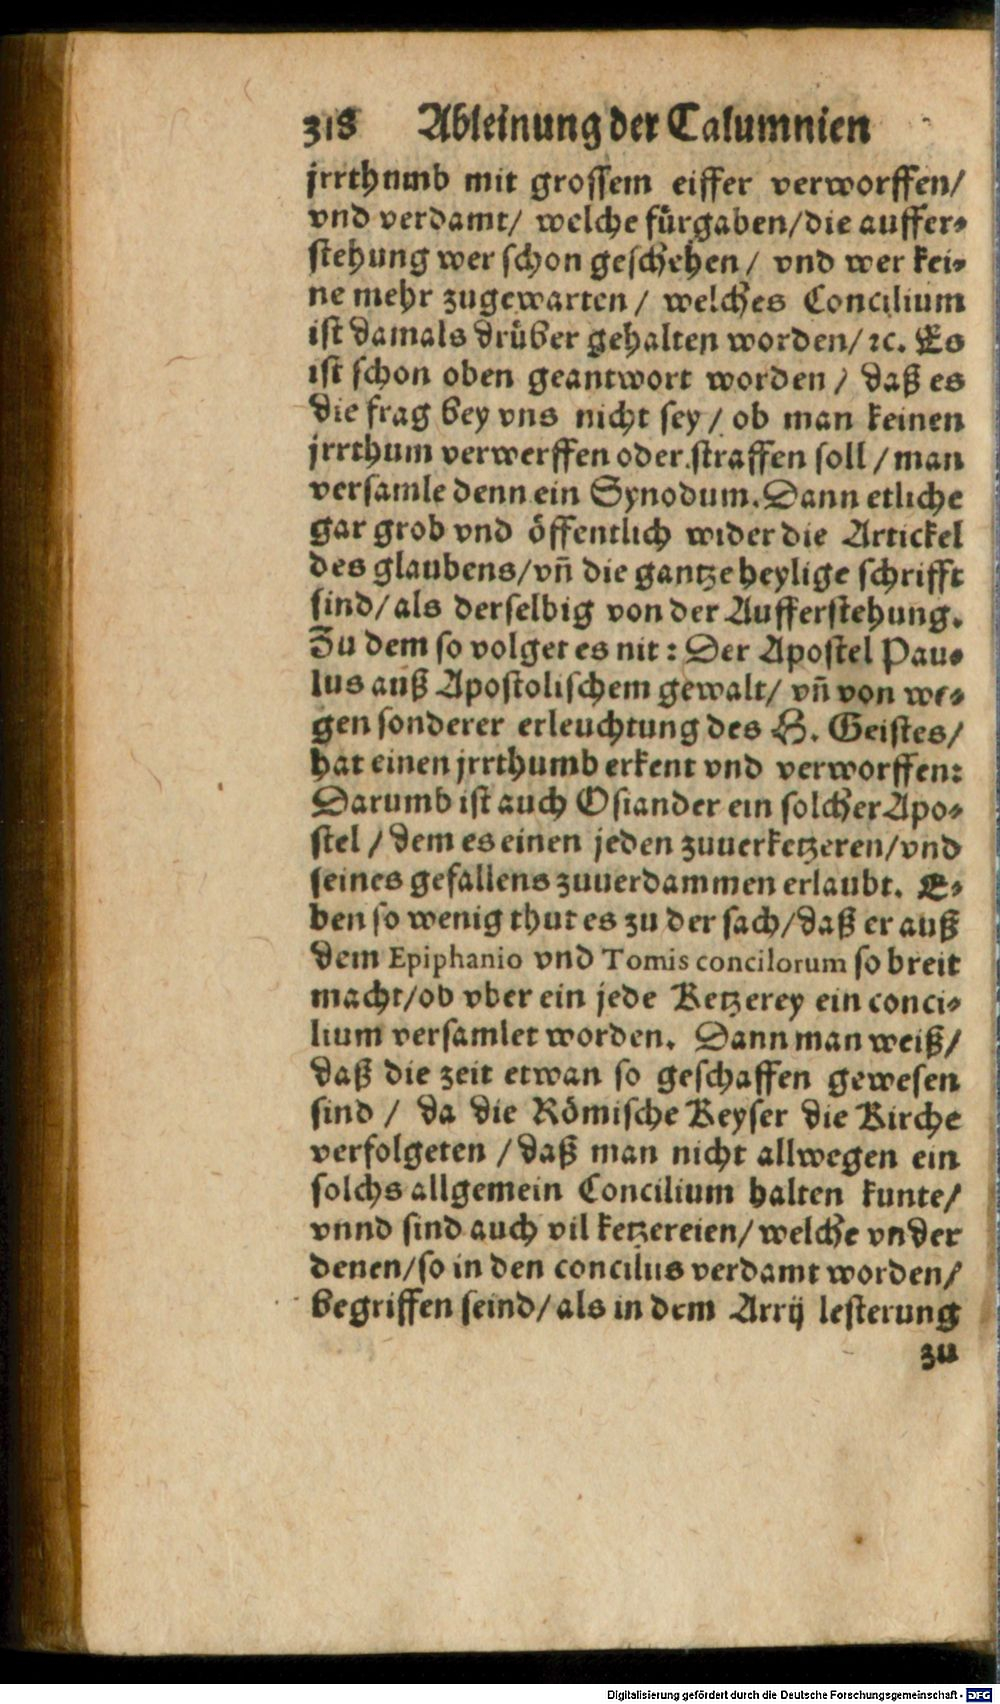 318 Ableinung der Calumnien
jrrthnmb mit grossem eiffer verworffen/
vnd verdamt/ welche fürgaben/die auffer-
stehung wer schon geschehen/ vnd wer kei-
ne mehr zugewarten/ welches Concilium
ist damals drüber gehalten worden/ ꝛc. Es
ist schon oben geantwort worden/ daß es
die frag bey vns nicht sey/ ob man keinen
jrrthum verwerffen oder straffen soll/ man
versamle denn ein Synodum. Dann etliche
gar grob vnd öffentlich wider die Artickel
des glaubens/vñ die gantze heylige schrifft
sind/als derselbig von der Aufferstehung.
Zu dem so volget es nit: Der Apostel Pau-
lus auß Apostolischem gewalt/ vñ von we-
gen sonderer erleuchtung des H. Geistes/
hat einen jrrthumb erkent vnd verworffen:
Darumb ist auch Osiander ein solcher Apo-
stel/ dem es einen jeden zuuerketzeren/vnd
seines gefallens zuuerdammen erlaubt. E-
ben so wenig thut es zu der sach/daß er auß
dem Epiphanio vnd Tomis concilorum so breit
macht/ob vber ein jede Ketzerey ein conci-
lium versamlet worden. Dann man weiß/
daß die zeit etwan so geschaffen gewesen
sind/ da die Römische Keyser die Kirche
verfolgeten/ daß man nicht allwegen ein
solchs allgemein Concilium halten kunte/
vnnd sind auch vil ketzereien/ welche vnder
denen/so in den conciliis verdamt worden/
begriffen seind/als in dem Arrij lesterung
zu
Digitalisierung gefördert durch die Deutsche Forschungsgemeinschaft - DFG